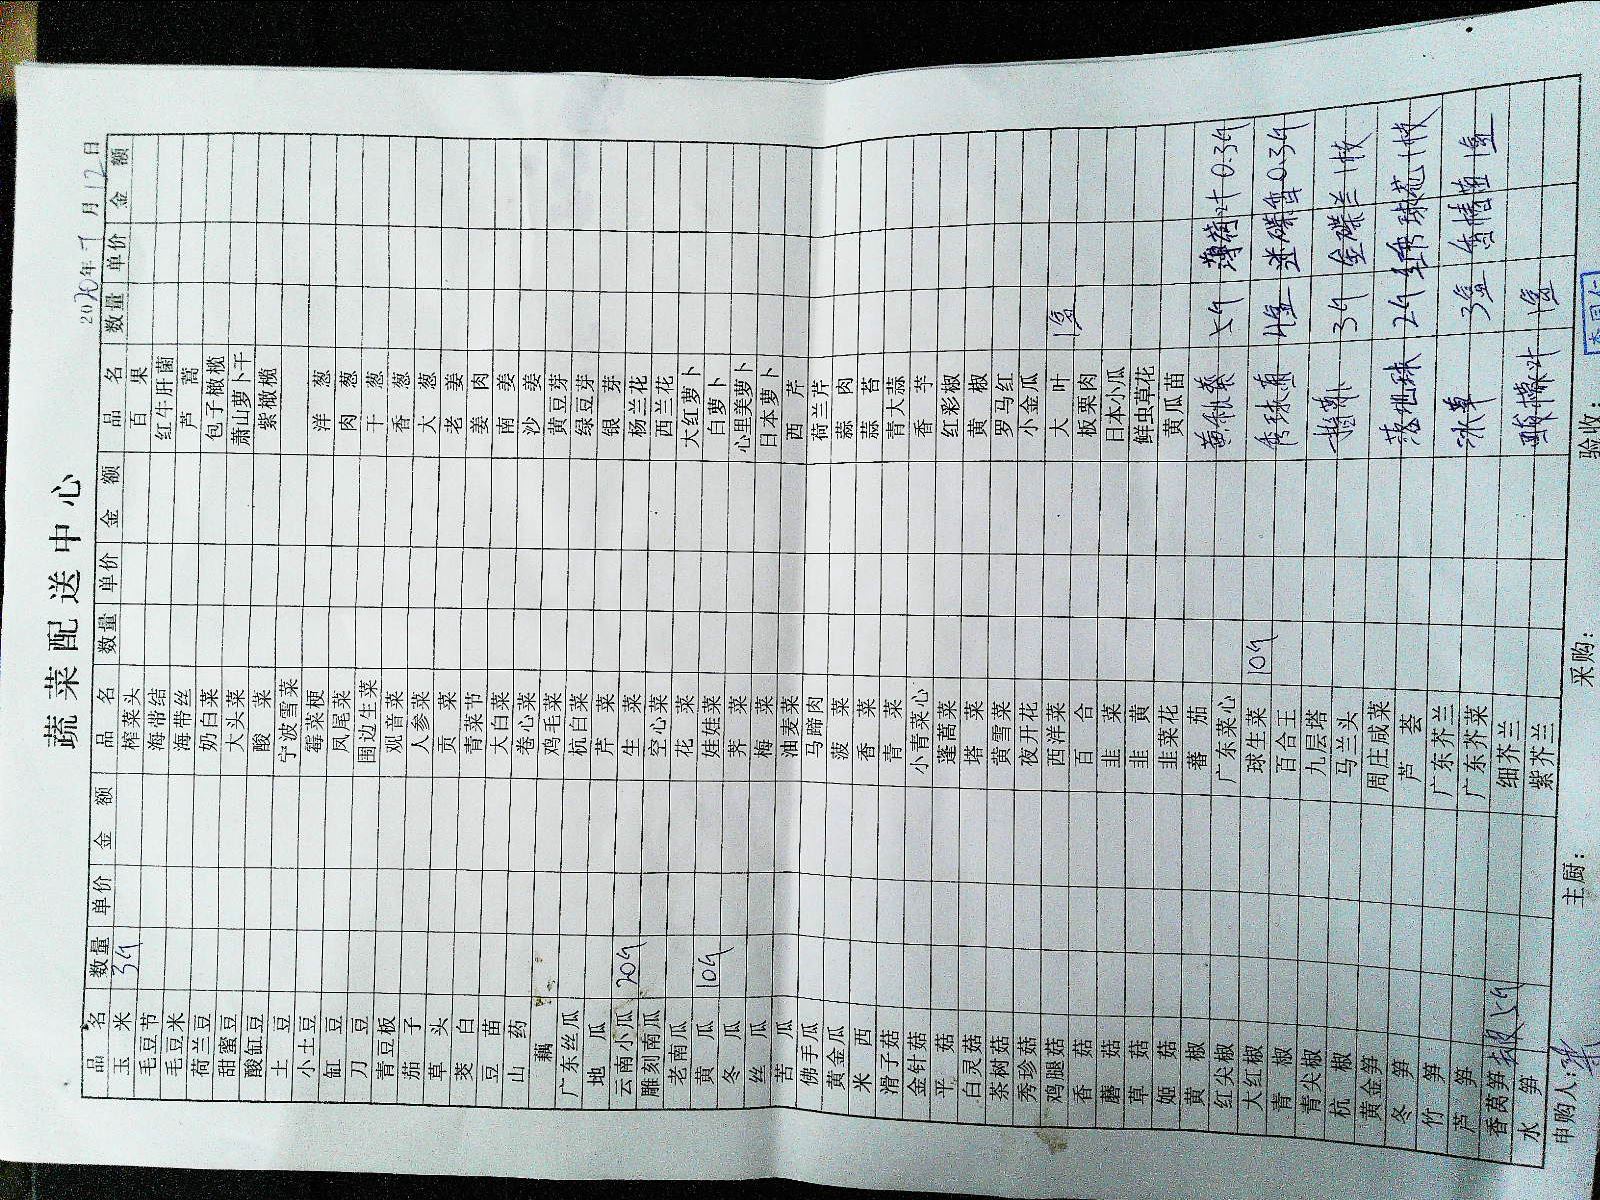 蔬菜配送中心
2020年7月12日
品名 数量 单价 金额 品名 数量 单价 金额 品名 数量 单价 金额
玉米 3斤 榨菜头 百果
毛豆节 海带结 红牛肝菌
毛豆米 海带丝 芦蒿
荷兰豆 奶白菜 包子橄榄
甜蜜豆 大头菜 萧山萝卜干
酸缸豆 酸菜 紫橄榄
土豆 宁波雪菜
小土豆 霉菜梗 洋葱
缸豆 凤尾菜 肉葱
刀豆 围边生菜 干葱
青豆板 观音菜 香葱
茄子 人参菜 大葱
草头 贡菜 老姜
茭白 青菜节 姜肉
豆苗 大白菜 南姜
山药 卷心菜 沙姜
藕 鸡毛菜 黄豆芽
广东丝瓜 杭白菜 绿豆芽
地瓜 芹菜 银芽
云南小瓜 20斤 生菜 杨兰花
雕刻南瓜 空心菜 西兰花
老南瓜 花菜 大红萝卜
黄瓜 10斤 娃娃菜 白萝卜
冬瓜 荠菜 心里美萝卜
丝瓜 梅菜 日本萝卜
苦瓜 油麦菜 西芹
佛手瓜 马蹄肉 荷兰芹
黄金瓜 菠菜 蒜肉
米西 香菜 蒜苔
滑子菇 青菜 青大蒜
金针菇 小青菜心 香芋
平菇 蓬蒿菜 红彩椒
白灵菇 塔菜 黄椒
茶树菇 黄雪菜 罗马红
秀珍菇 夜开花 小金瓜
鸡腿菇 西洋菜 大叶 1包
香菇 百合 板栗肉
蘑菇 韭菜 日本小瓜
草菇 韭黄 鲜虫草花
姬菇 韭菜花 黄瓜苗
黄椒 蕃茄
红尖椒 广东菜心 黄秋葵 5斤 薄荷叶 0.3斤
大红椒 球生菜 10斤
青椒 百合王 4盒 0.3斤
青尖椒 九层塔
杭椒 马兰头 3斤 金碟兰 1枝
黄金笋 周庄咸菜
冬笋 芦荟 2斤 1枝
竹笋 广东芥兰
芦笋 广东芥菜 冰草 3盒 1盒
香莴笋 5斤 细芥兰
水笋 紫芥兰 1盒
申购人: 主厨: 采购: 验收: